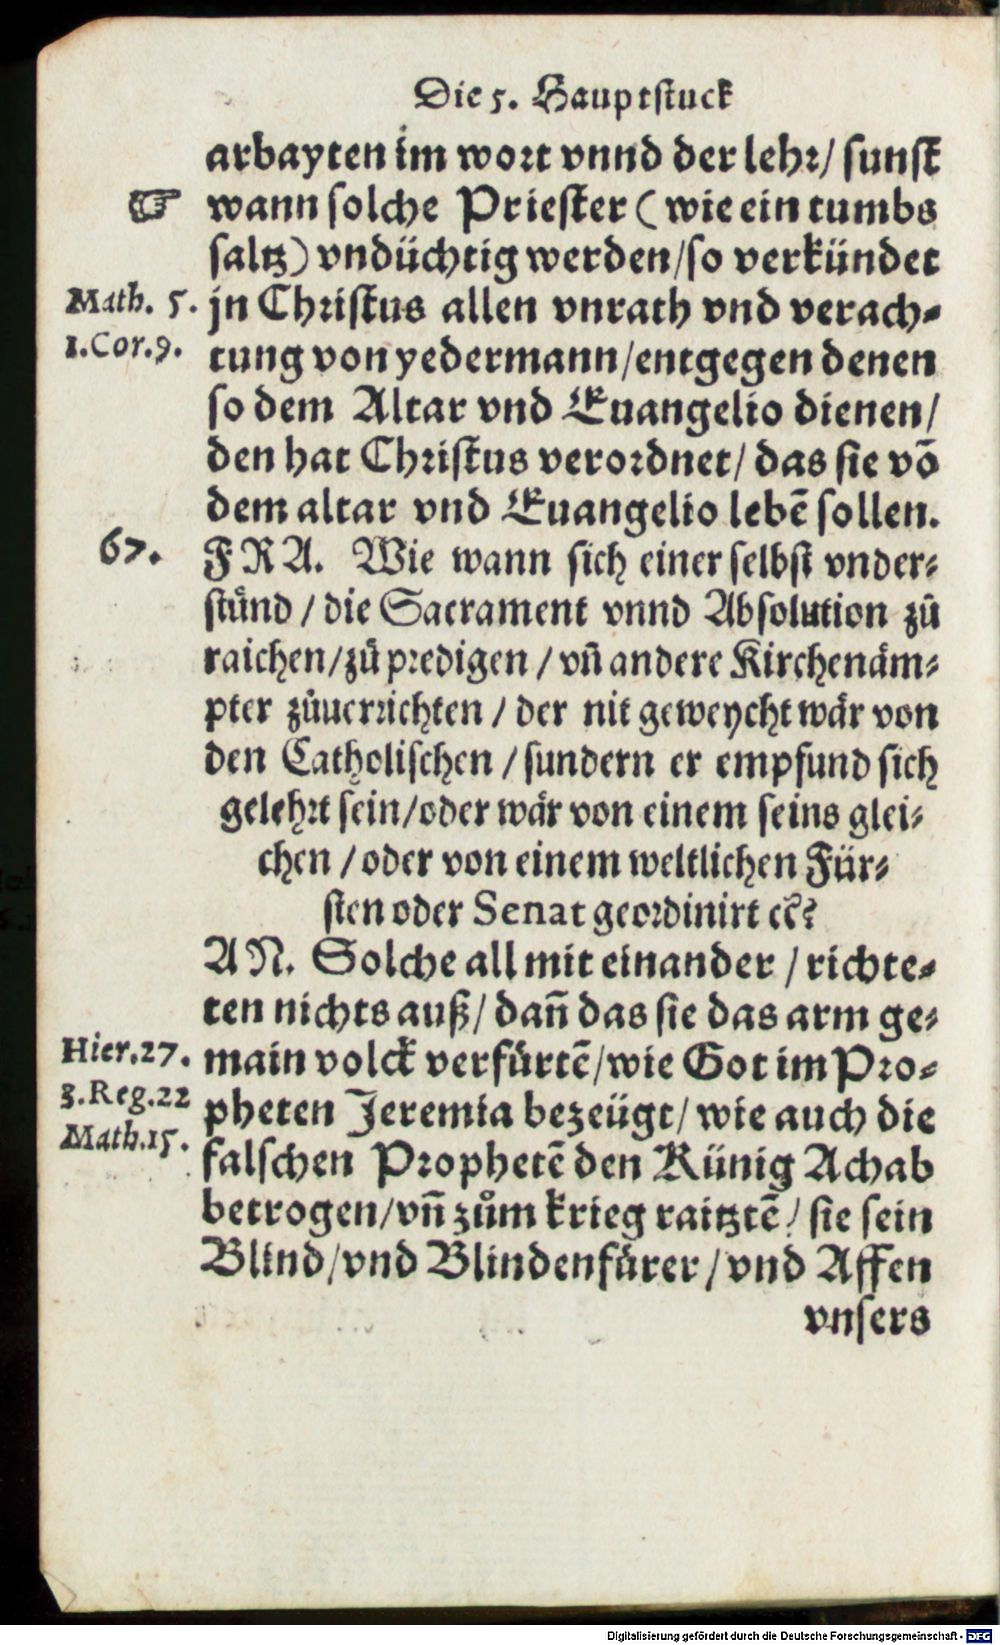 Die 5. Hauptstuck
arbayten im wort vnnd der lehr/ sunst
☞ wann solche Priester ( wie ein tumbs
saltz) vndüchtig werden/so verkündet
Math. 5. jn Christus allen vnrath vnd verach-
1.Cor.9. tung von yedermann/entgegen denen
so dem Altar vnd Euangelio dienen/
den hat Christus verordnet/ das sie võ
dem altar vnd Euangelio lebẽ sollen.
67. FRA. Wie wann sich einer selbst vnder-
stünd / die Sacrament vnnd Absolution zů
raichen/zů predigen / vñ andere Kirchenäm-
pter zůuerrichten / der nit geweycht wär von
den Catholischen / sundern er empfund sich
gelehrt sein/oder wär von einem seins glei-
chen / oder von einem weltlichen Für-
sten oder Senat geordinirt ec̃?
AN. Solche all mit einander / richte-
ten nichts auß/ dañ das sie das arm ge-
Hier.27. main volck verfürtẽ/wie Got im Pro-
3.Reg.22 pheten Jeremia bezeügt/ wie auch die
Math.15. falschen Prophetẽ den Künig Achab
betrogen/vñ zům krieg raitztẽ/ sie sein
Blind/vnd Blindenfürer / vnd Affen
vnsers
Digitalisierung gefördert durch die Deutsche Forschungsgemeinschaft - DFG